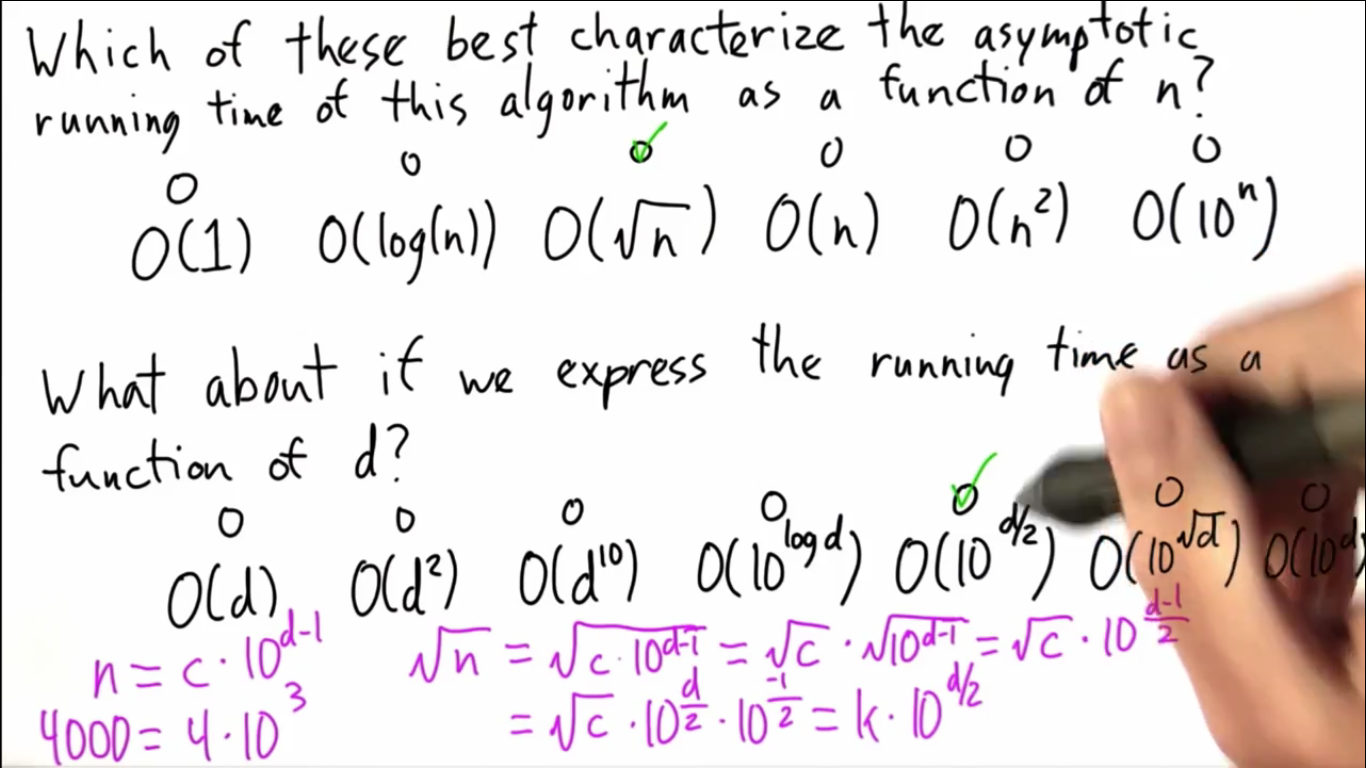 Which of these best characterize the asymptotic
running time of this algorithm as a function of n?
O(1) O(log(n)) O(√n) O(n) O(n²) O(10ⁿ)
What about if we express the running time as a
function of d?
O(d) O(d²) O(d¹⁰) O(10^log d) O(10^d/2) O(10^√d) O(10^d)
n = c · 10^d-1 √n = √c · 10^d-1 = √c · √10^d-1 = √c · 10^d-1/2
4000 = 4 · 10³ = √c · 10^d/2 · 10^-1/2 = k · 10^d/2